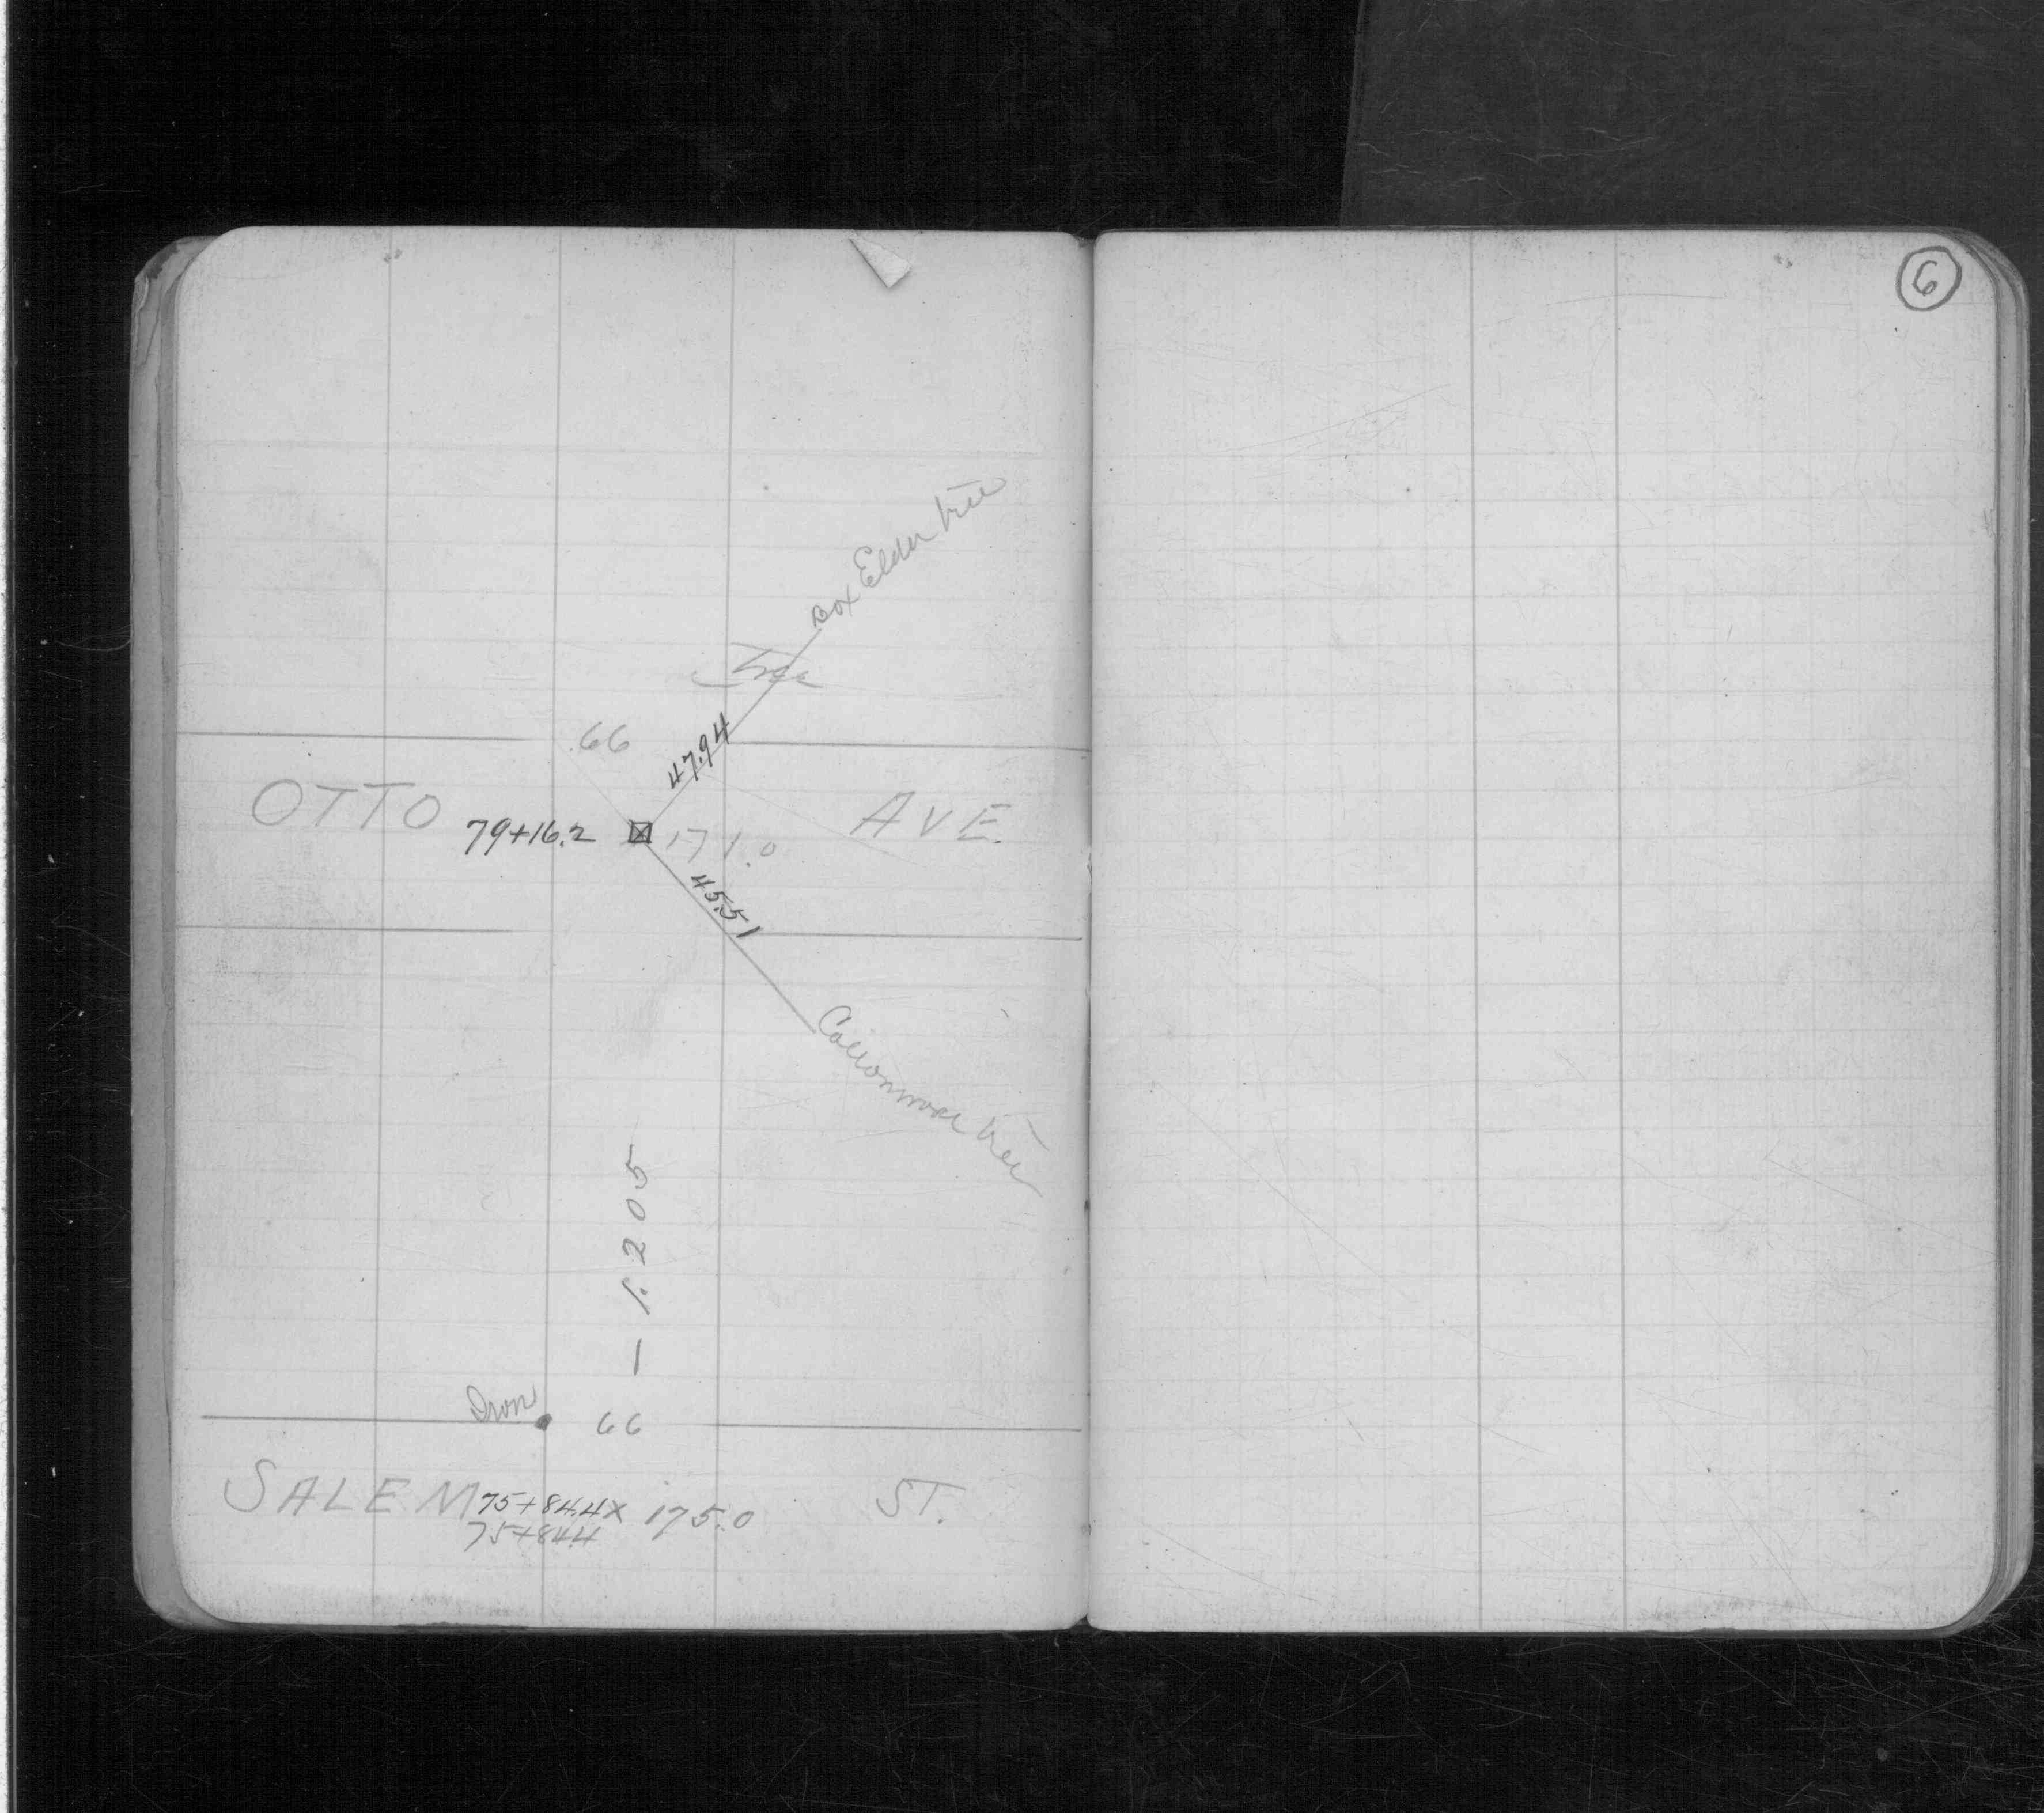 6
Box Elder tree
Tree
66
47.94
OTTO AVE.
79+16.2 171.0
45.51
Cottonwood tree
— 1.205
Iron
66
SALEM ST.
75+84.4x 175.0
75+84.4